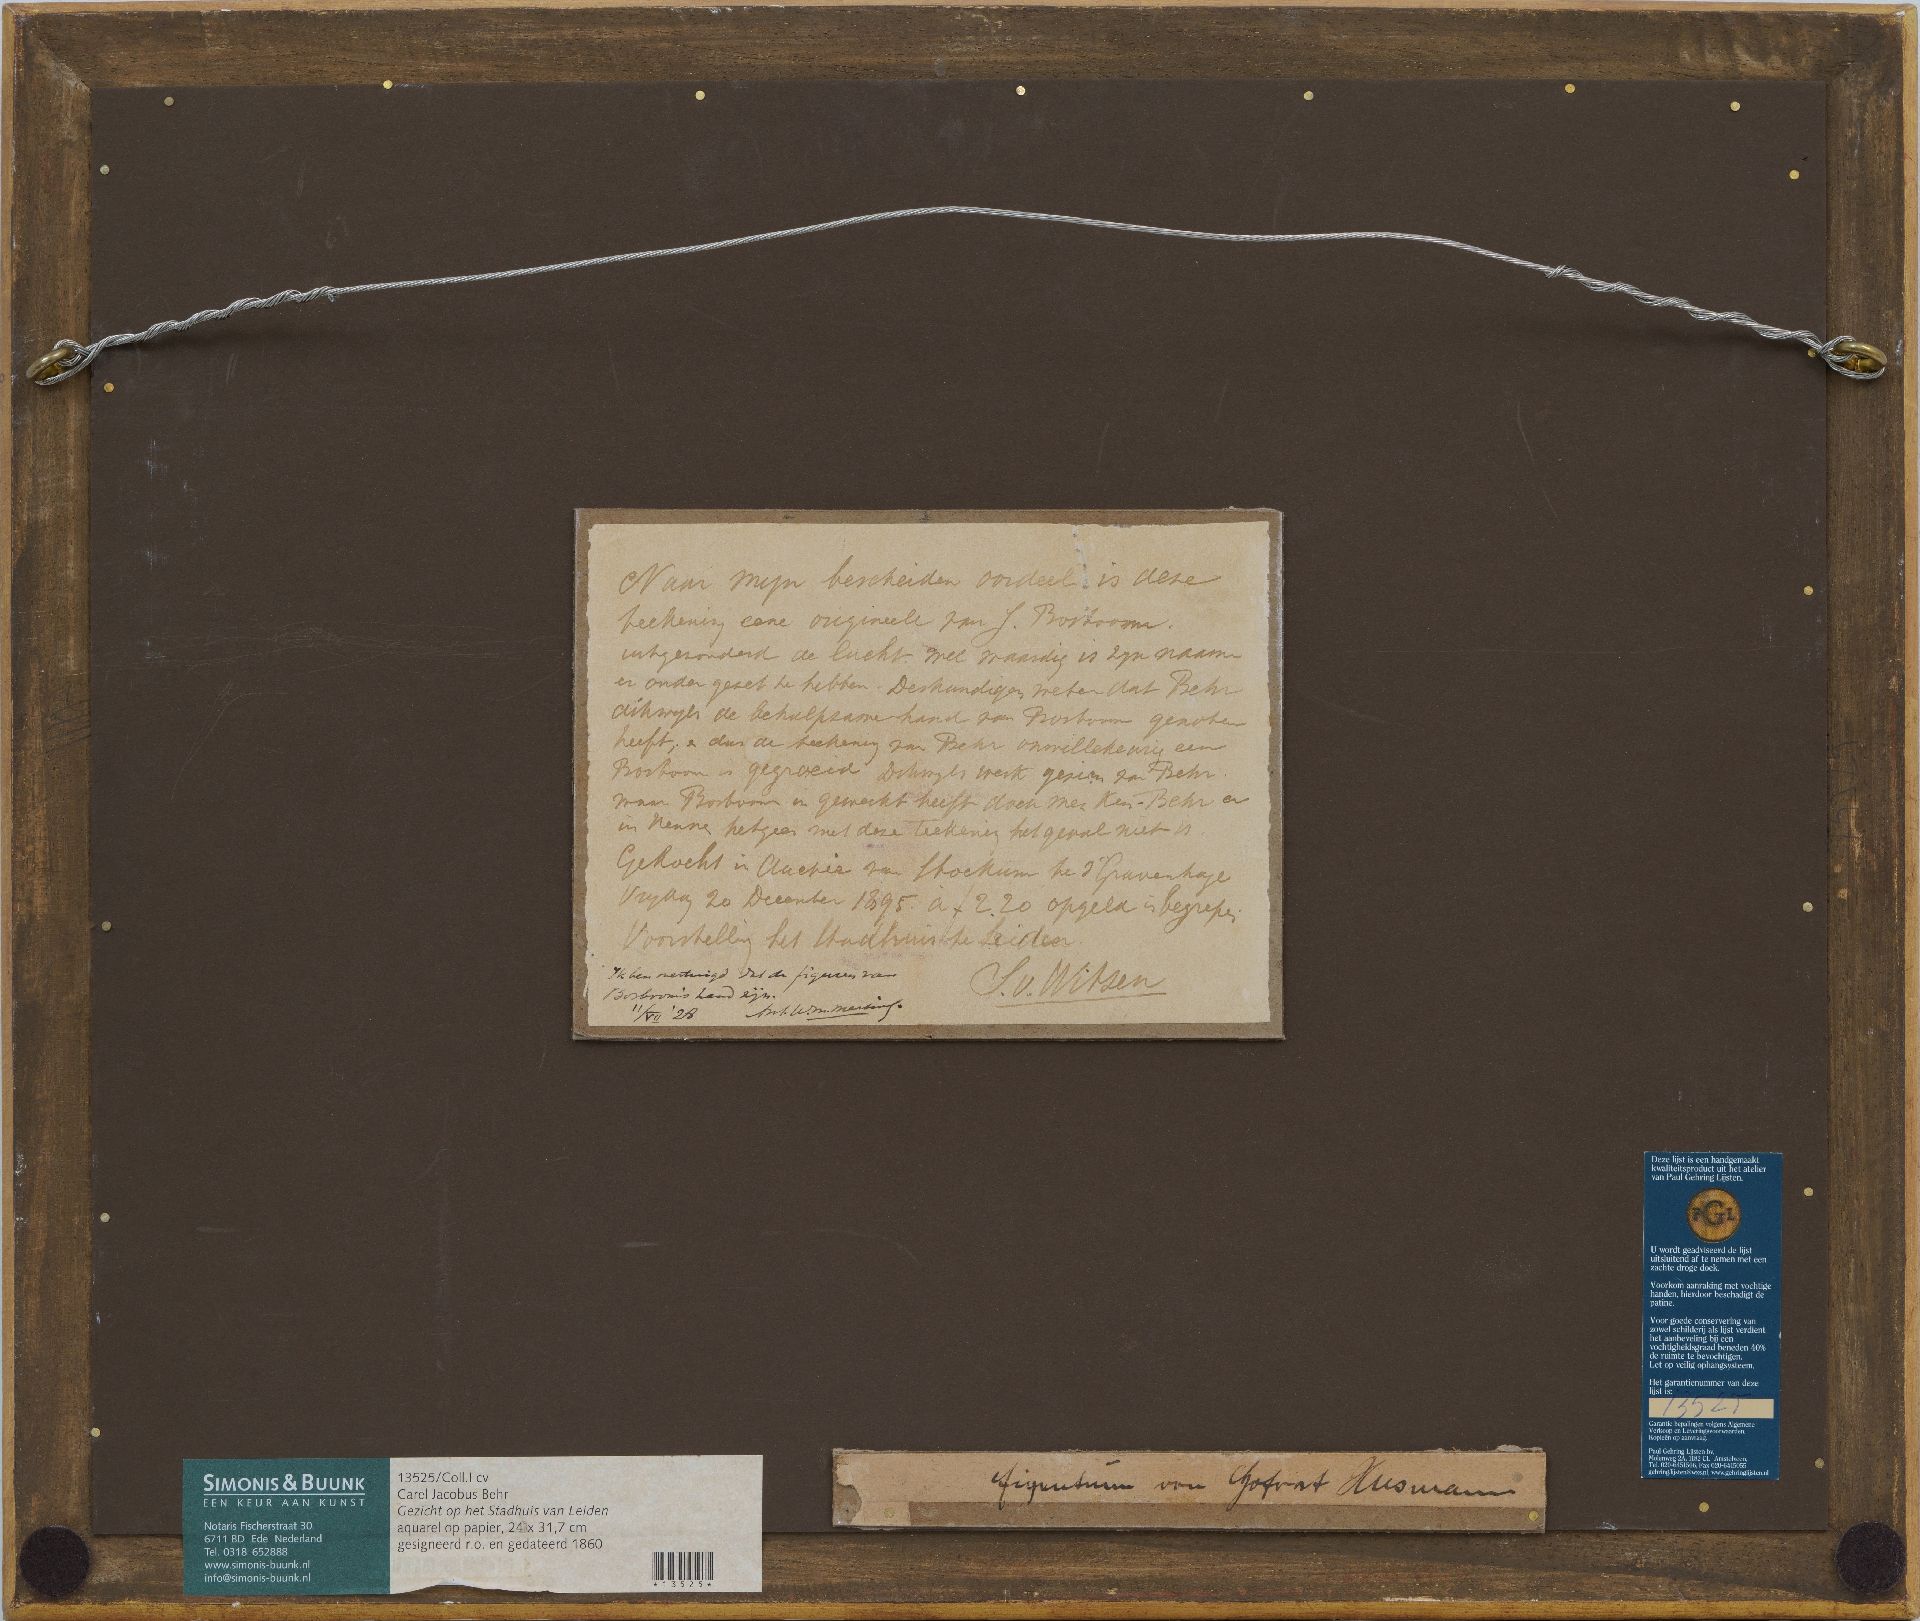 Naar mijn bescheiden oordeel is deze
teekening eene origineele van J. Bosboom.
uitgezonderd de lucht. Wel waardig is zijn naam
er onder gezet te hebben. Deskundigen weten dat Behr
dikwijls de behulpzame hand van Bosboom genoten
heeft, en dus de teekening van Behr onwillekeurig een
Bosboom is gegroeid Dikwijls werk gezien van Behr.
waar Bosboom in gewerkt heeft doch men Ken Behr er
in Kennen hetgeen met deze teekening het geval niet is.
Gekocht in Auctie van Stockum te s'Gravenhage
Vrijdag 20 December 1895. à f 2.20 opgeld is begrepen
Voorstelling het Stadhuis te Leiden.
S.v. Witsen
Ik ben overtuigd dat de figuren van
Bosboom's hand zijn.
11/VII '28
Eigentum von Gofvart Husmann
SIMONIS & BUUNK
EEN KEUR AAN KUNST
Notaris Fischerstraat 30
6711 BD Ede Nederland
Tel. 0318 652888
www.simonis-buunk.nl
info@simonis-buunk.nl
13525/Coll.I cv
Carel Jacobus Behr
Gezicht op het Stadhuis van Leiden
aquarel op papier, 24 x 31,7 cm
gesigneerd r.o. en gedateerd 1860
*13525*
Deze lijst is een handgemaakt
kwaliteitsproduct uit het atelier
van Paul Gehring Lijsten.
PGL
U wordt geadviseerd de lijst
uitsluitend af te nemen met een
zachte droge doek.
Voorkom aanraking met vochtige
handen, hierdoor beschadigt de
patine.
Voor goede conservering van
zowel schilderij als lijst verdient
het aanbeveling bij een
vochtigheidsgraad beneden 40%
de ruimte te bevochtigen.
Let op veilig ophangsysteem.
Het garantienummer van deze
lijst is:
13525
Garantie bepalingen volgens Algemene
Verkoop en Leveringsvoorwaarden.
Kopieën op aanvraag.
Paul Gehring Lijsten bv.
Molenweg 2A, 1182 CL Amstelveen
Tel. 020-6451506, Fax 020-6415055
gehring.lijsten@wxs.nl www.gehringlijsten.nl